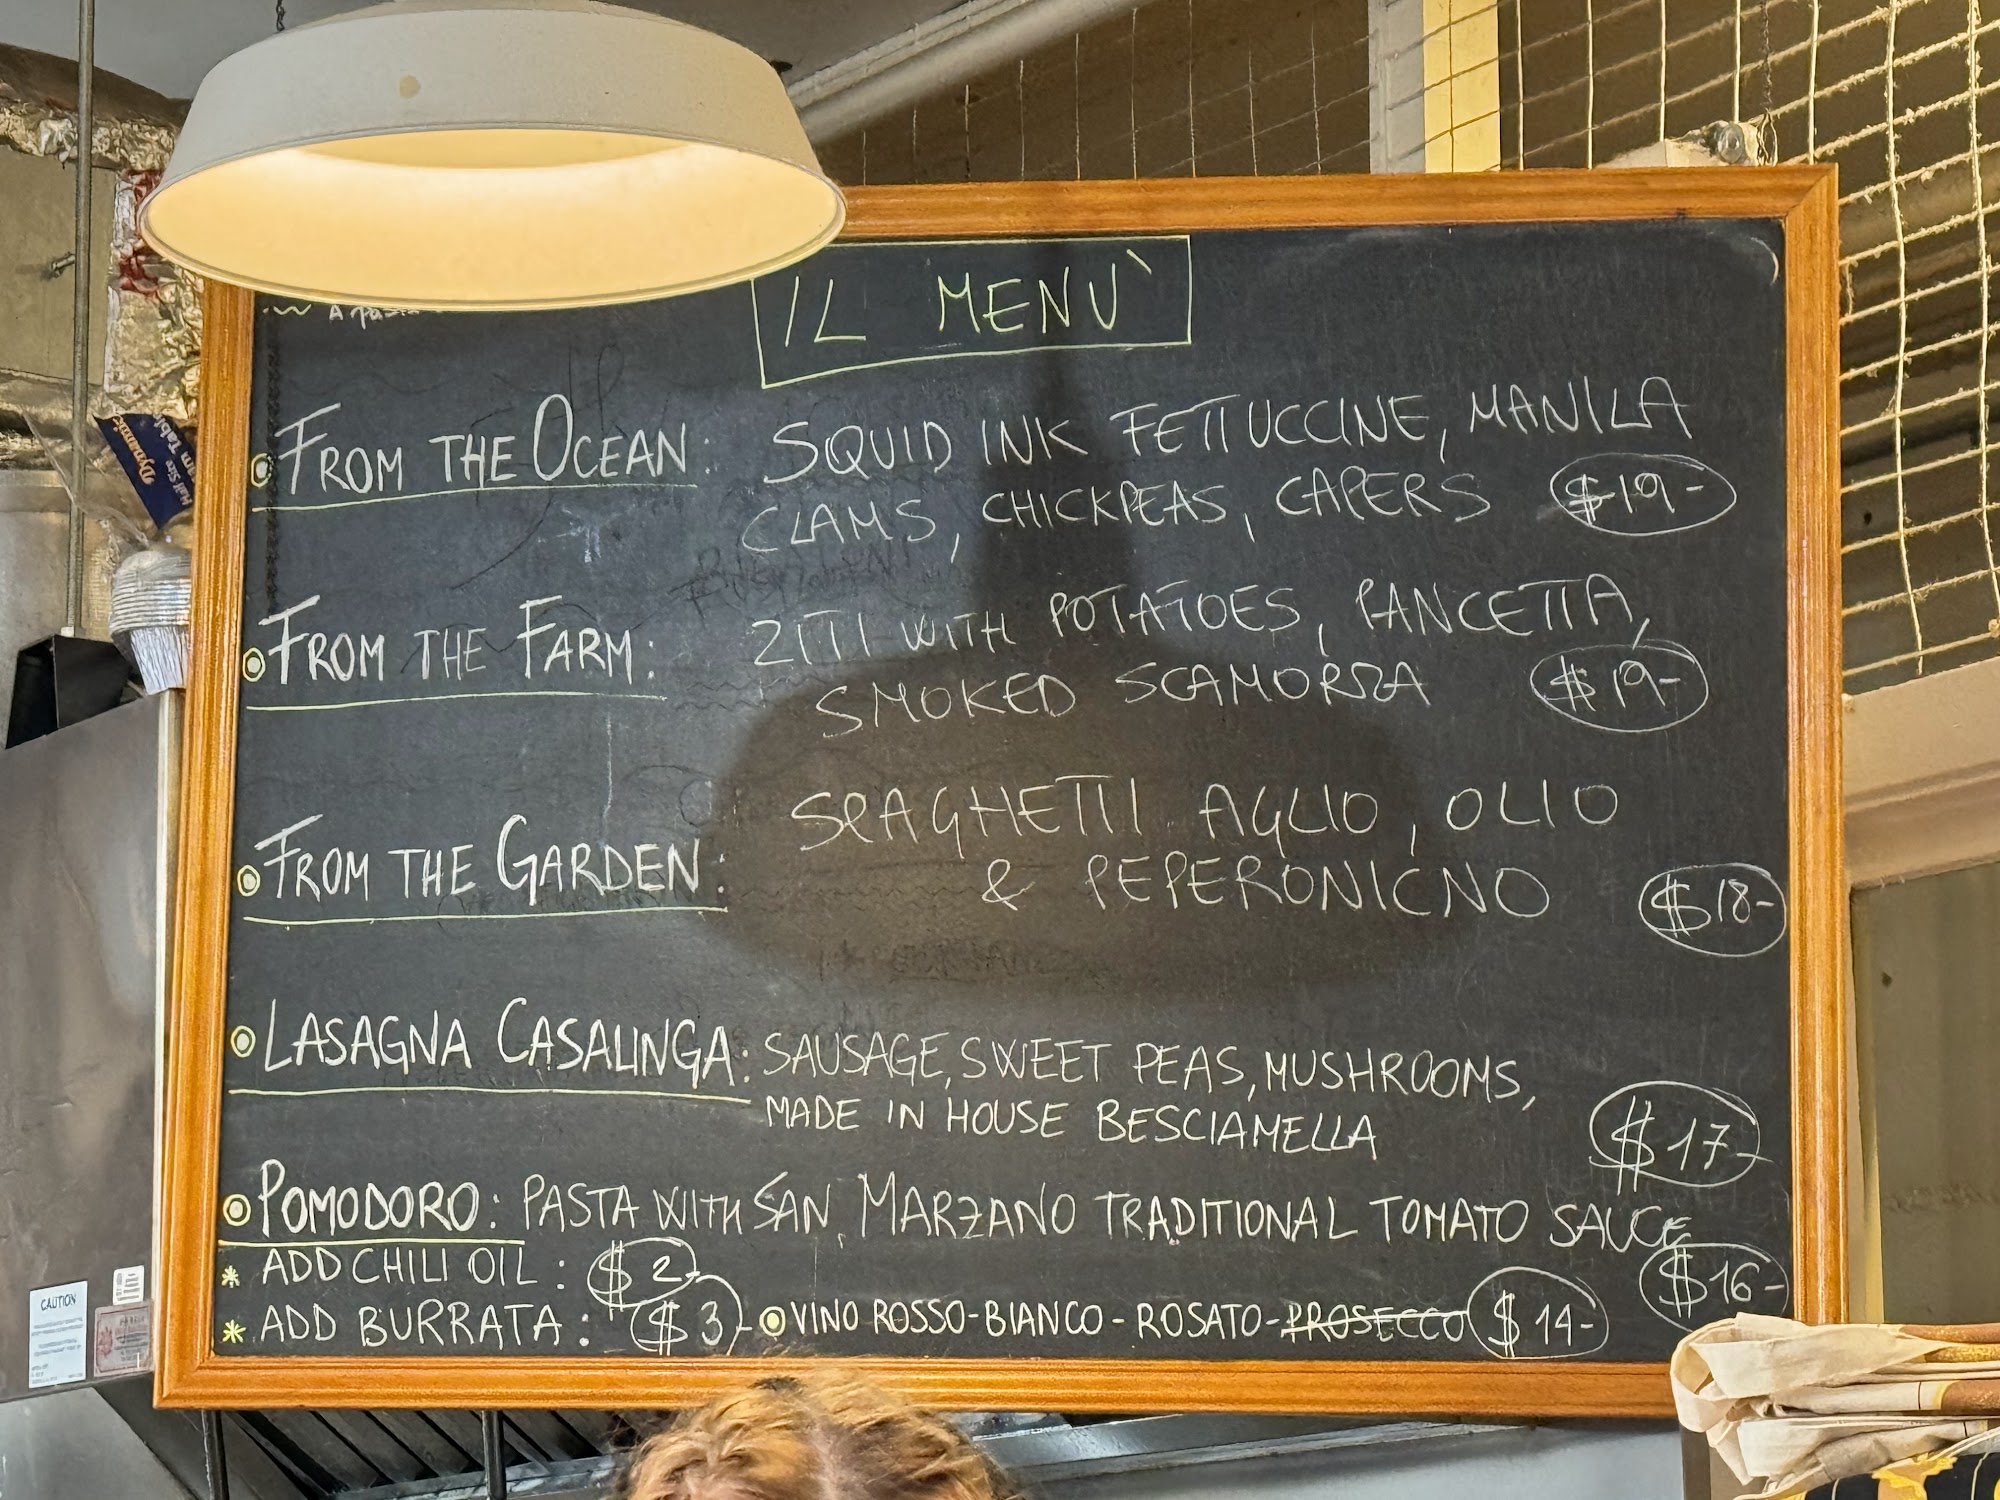 IL MENÙ
FROM THE OCEAN: SQUID INK FETTUCCINE, MANILA
CLAMS, CHICKPEAS, CAPERS $19-
FROM THE FARM: ZITI WITH POTATOES, PANCETTA,
SMOKED SCAMORZA $19-
FROM THE GARDEN: SPAGHETTI AGLIO, OLIO
& PEPERONICNO $18-
LASAGNA CASALINGA: SAUSAGE, SWEET PEAS, MUSHROOMS,
MADE IN HOUSE BESCIAMELLA $17-
POMODORO: PASTA WITH SAN MARZANO TRADITIONAL TOMATO SAUCE
$16-
* ADD CHILI OIL: $2-
* ADD BURRATA: $3-
VINO ROSSO-BIANCO-ROSATO-PROSECCO $14-
Dynamic
CAUTION